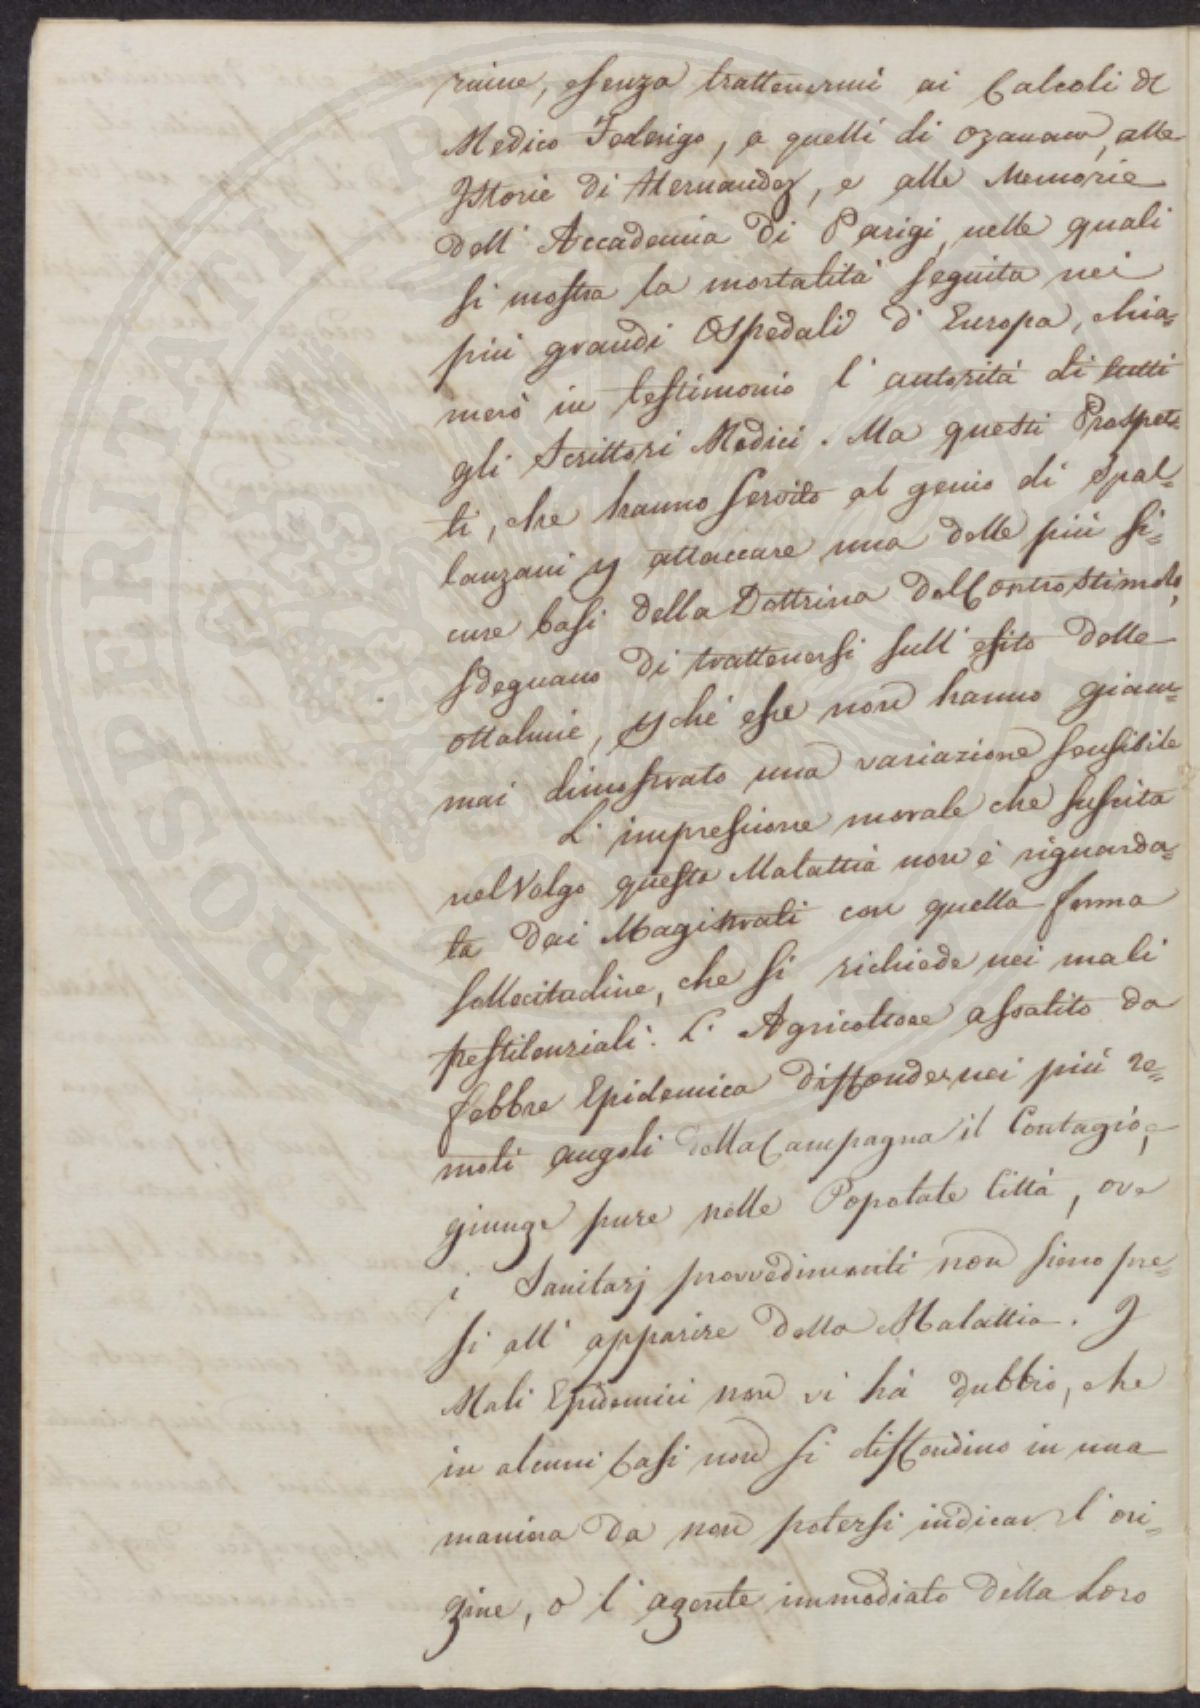 raine, e senza trattenermi ai Calcoli del
Medico Federigo, a quelli di Ozanam, alle
Istorie di Hernandez, e alle Memorie
dell' Accademia di Parigi, nelle quali
si mostra la mortalità seguita nei
più grandi Ospedali d' Europa, chia=
merò in testimonio l' autorità di tutti
gli Scrittori Medici. Ma questi Prospet=
ti, che hanno servito al genio di Spal=
lanzani p attaccare una delle più si=
cure basi della Dottrina del Controstimolo,
sdegnano di trattenersi sull' esito delle
ottalmie, pchè esse non hanno giam=
mai dimostrato una variazione sensibile
L' impressione morale che suscita
nel Volgo questa Malattia non è riguarda=
ta dai Magistrati con quella ferma
sollecitudine, che si richiede nei mali
pestilenziali. L' Agricoltore assalito da
febbre Epidemica diffonde nei più re=
moti angoli della Campagna il Contagio, e
giunge pure nelle Popolate Città, ove
i Sanitarj provvedimenti non sieno pre=
si all' apparire della Malattia. I
Mali Epidemici non vi hà dubbio, che
in alcuni Casi non si diffondino in una
maniera da non potersi indicar l' ori=
gine, o l' agente immediato della loro
PROSPERITATI